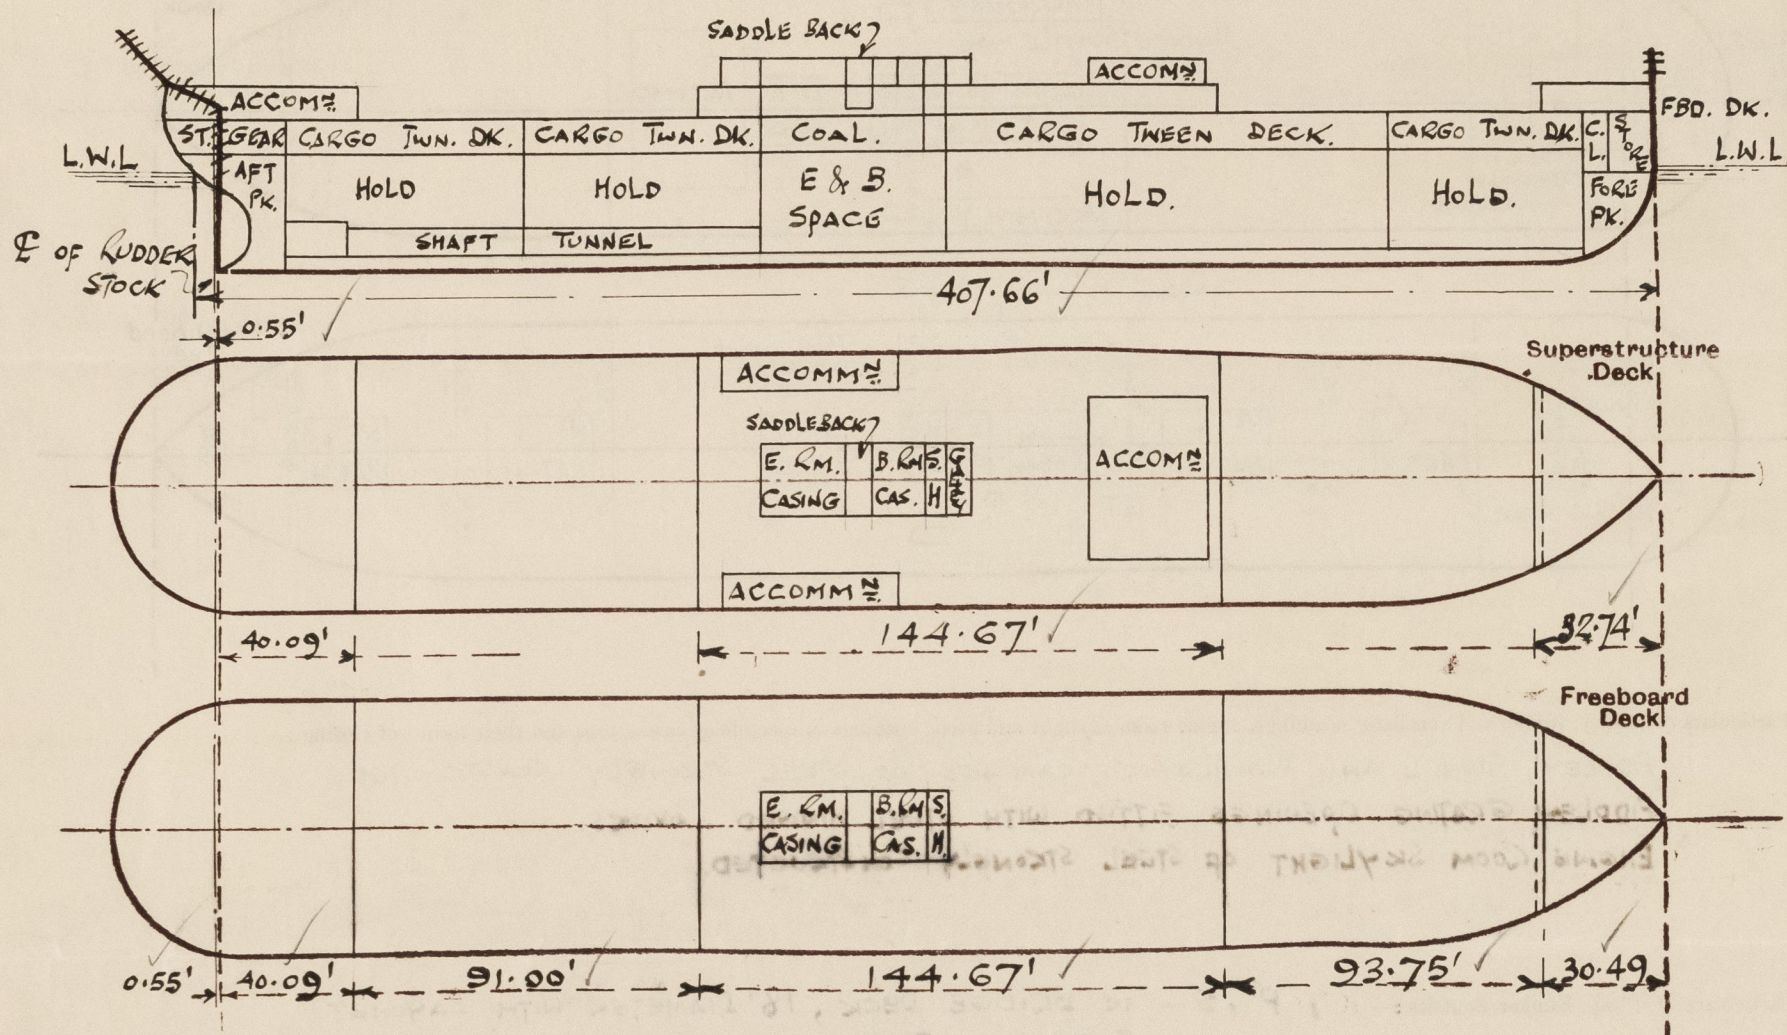 SADDLE BACK
ACCOMN
ACCOMN
FBD. DK.
ST. GEAR CARGO TWN. DK. CARGO TWN. DK. COAL. CARGO TWEEN DECK. CARGO TWN. DK. C. L. STORE
L.W.L
L.W.L
AFT PK.
HOLD
HOLD
E & B. SPACE
HOLD.
HOLD.
FORE PK.
SHAFT TUNNEL
℄ OF RUDDER
STOCK
407.66'
0.55'
Superstructure
Deck
ACCOMMN
SADDLEBACK
E. RM. B.RM S. GALLEY
CASING CAS. H
ACCOMN
ACCOMMN
40.09' 144.67' 32.74'
Freeboard
Deck
E. RM. B.RM S.
CASING CAS. H.
0.55' 40.09' 91.00' 144.67' 93.75' 30.49